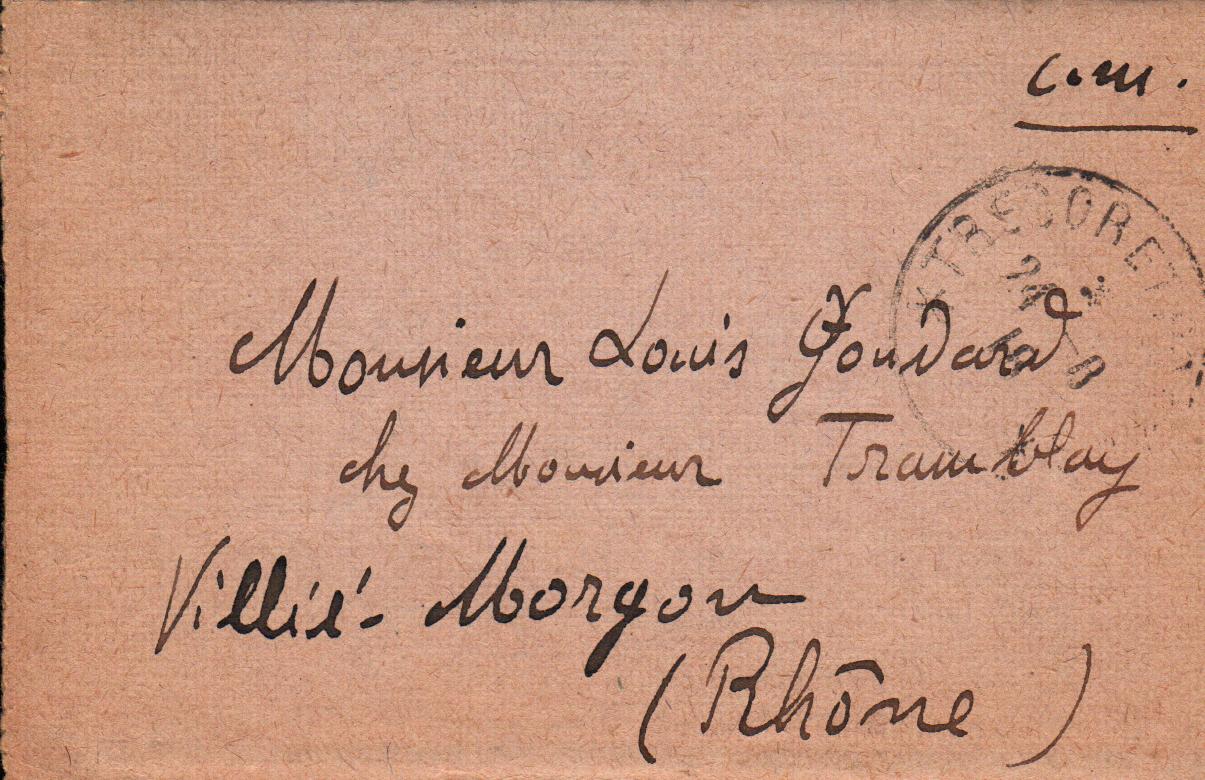 c.m.
TRESOR ET
Monsieur Louis Goudard
chez Monsieur Tramblay
Villié-Morgon
(Rhône)